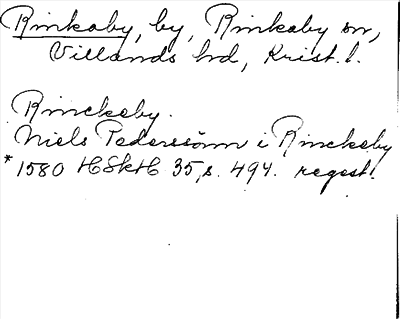 Rinkaby, by, Rinkaby sn,
Villands hd, Krist. l.
Rinckeby.
Niels Pederssönn i Rinckeby
*1580 HSkH 35, s. 494. regest.